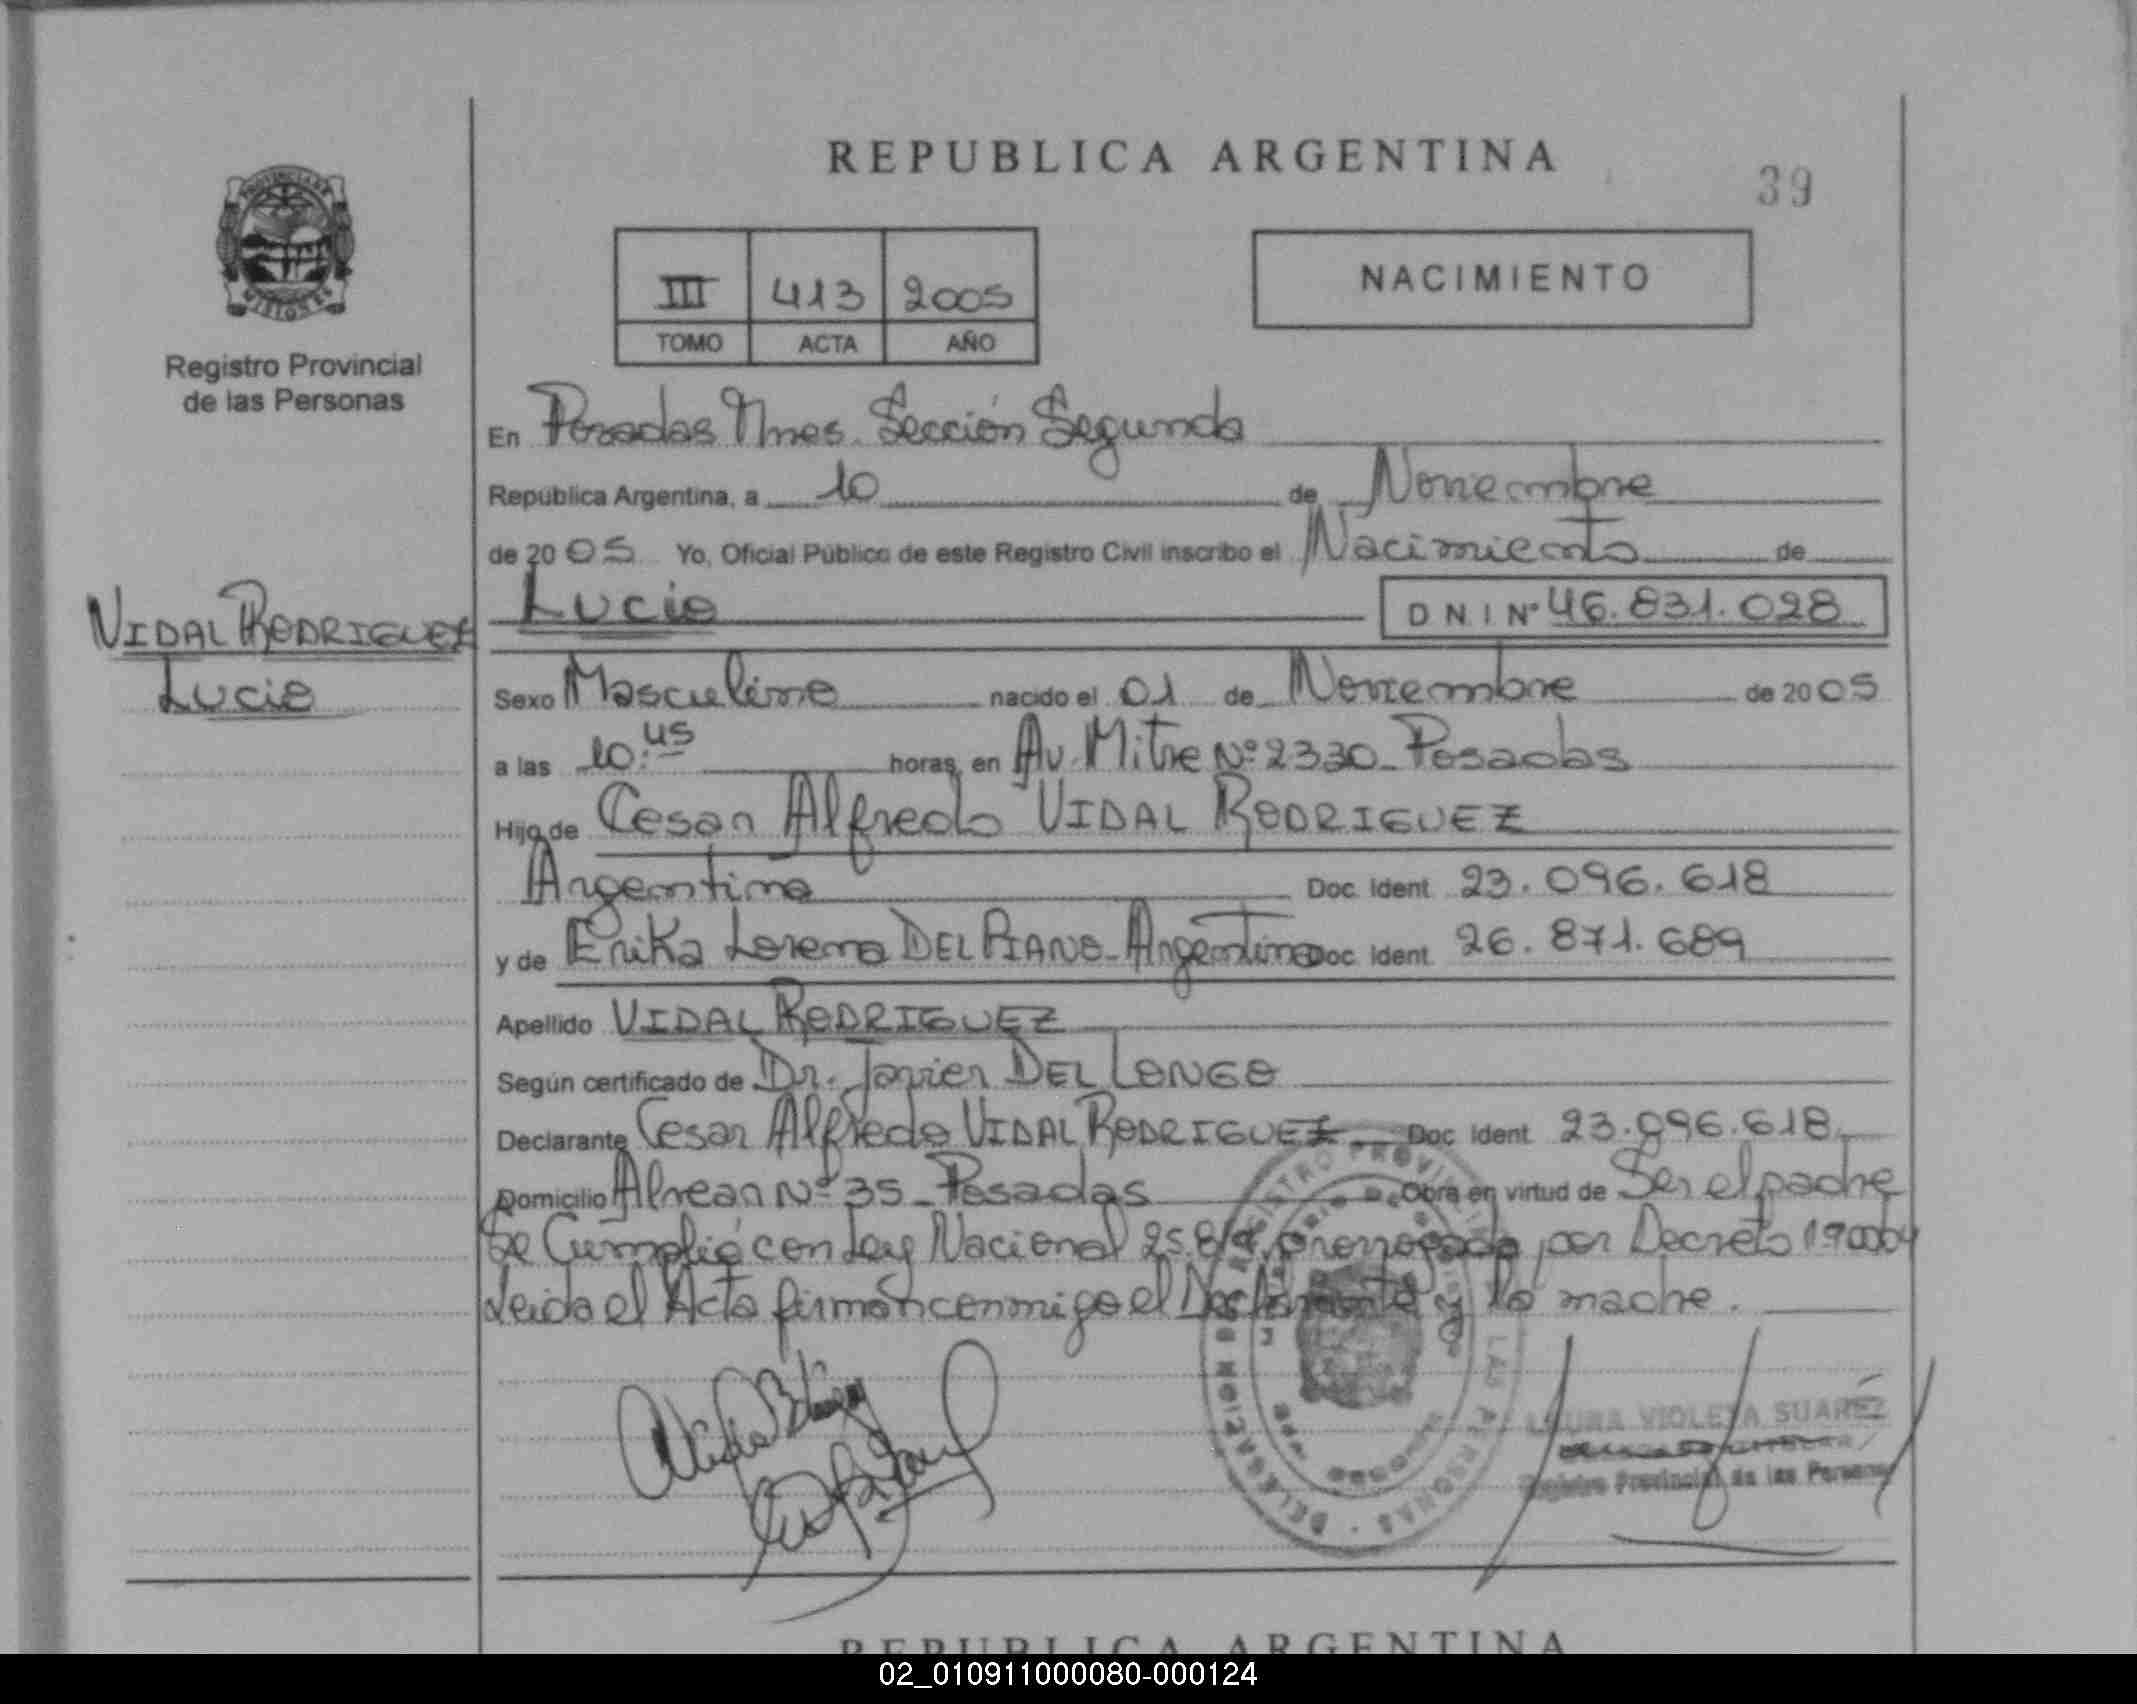 REPUBLICA ARGENTINA
39
III 413 2005
TOMO ACTA AÑO
NACIMIENTO
PROVINCIA DE
MISIONES
Registro Provincial
de las Personas
VIDAL RODRIGUEZ
Lucio
En Posadas Mnes. Sección Segunda
República Argentina, a 10 de Noviembre
de 2005 Yo, Oficial Público de este Registro Civil inscribo el Nacimiento de
Lucio DNI Nº 46.831.028
Sexo Masculino nacido el 01 de Noviembre de 2005
a las 10:45 horas, en Av. Mitre Nº 2330 - Posadas
Hijo de Cesar Alfredo VIDAL RODRIGUEZ
Argentino Doc. Ident. 23.096.618
y de Erika Lorena DEL PIANO - Argentina Doc. Ident. 26.871.689
Apellido VIDAL RODRIGUEZ
Según certificado de Dr. Javier DEL LONGO
Declarante Cesar Alfredo VIDAL RODRIGUEZ Doc. Ident. 23.096.618
Domicilio Alvear Nº 35 - Posadas Obra en virtud de Ser el padre
Se Cumplió con Ley Nacional 25.819 prorrogado por Decreto
Leida el Acta firman conmigo el Declarante y la madre.
REGISTRO PROVINCIAL DE LAS PERSONAS
DELEGACION
LAURA VIOLETA SUAREZ
Registro Provincial de las Personas
REPUBLICA ARGENTINA
02_010911000080-000124